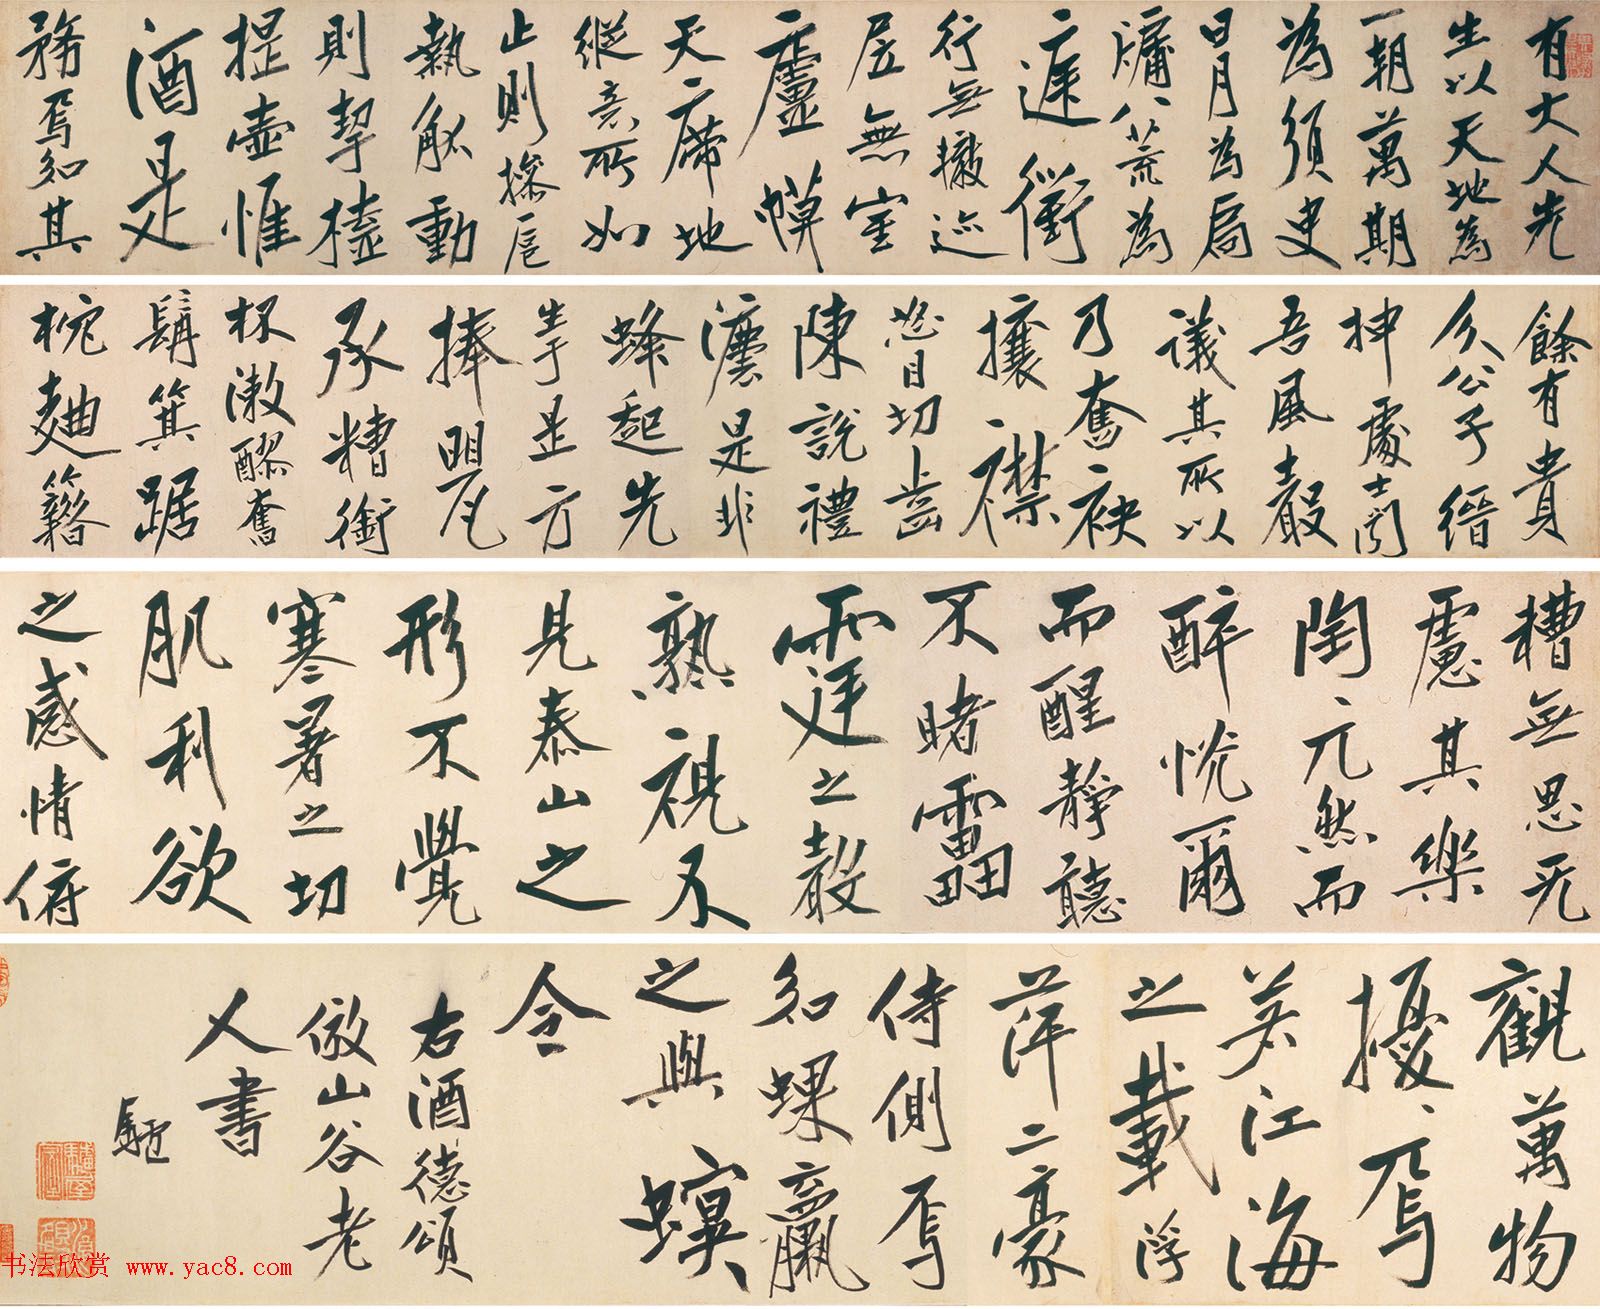 有大人先
生以天地為
一朝萬期
為須臾
日月為扃
牖八荒為
庭衢
行無轍迹
居無室
廬幙
天席地
縱意所如
止則操卮
執觚動
則挈榼
提壺惟
酒是
務焉知其
餘有貴
介公子縉
紳處士聞
吾風聲
議其所以
乃奮袂
攘襟
怒目切齒
陳說禮
灋是非
蜂起先
生于是方
捧甖
承糟銜
杯漱醪奮
髯箕踞
枕麴籍
糟無思无
慮其樂
陶、兀然而
醉恍爾
而醒靜聽
不睹靁
霆之聲
熟視不
見泰山之
形不覺
寒暑之切
肌利欲
之感情俯
觀萬物
擾、焉
若江海
之載浮
萍二豪
侍側焉
知蜾蠃
之與螟
令
右酒德頌
倣山谷老
人書
书法欣赏 www.yac8.com